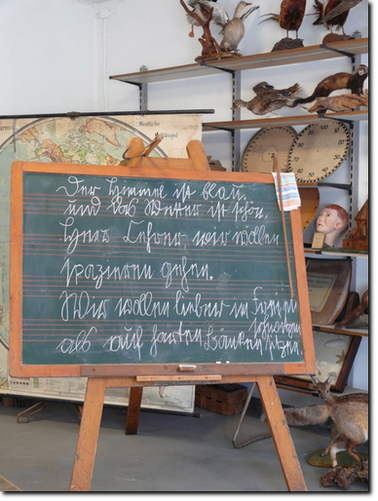 Westliche
Halbkugel
Der Himmel ist blau
und das Wetter ist schön.
Herr Lehrer, wir wollen
spazieren gehen.
Wir wollen lieber im Freien
schwitzen
als auf harten Bänken sitzen.